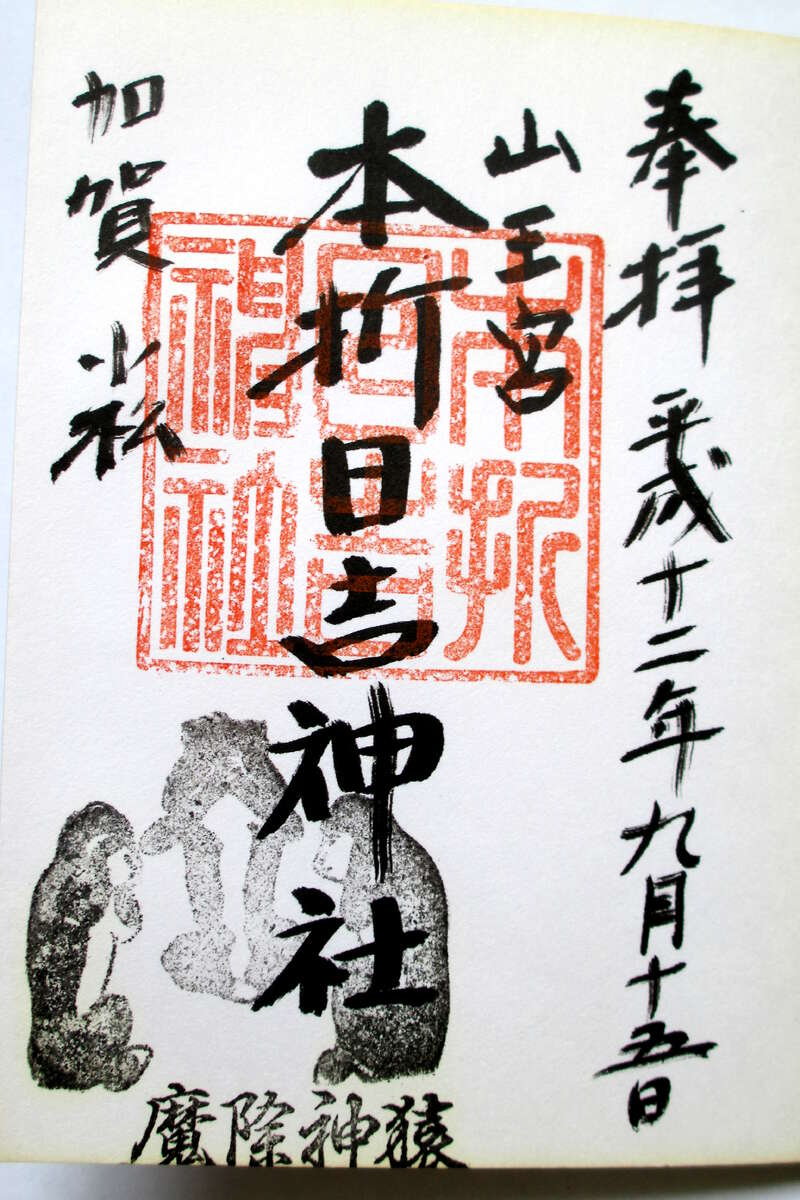 奉拝 平成十二年九月十五日
山王宮
本折日吉神社
加賀 小松
本折日吉神社
魔除神猿